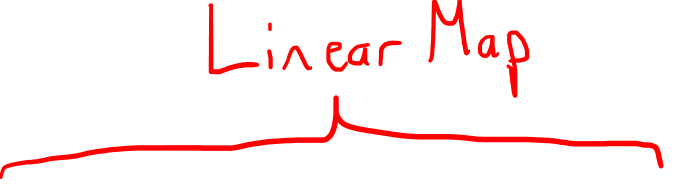 Linear Map